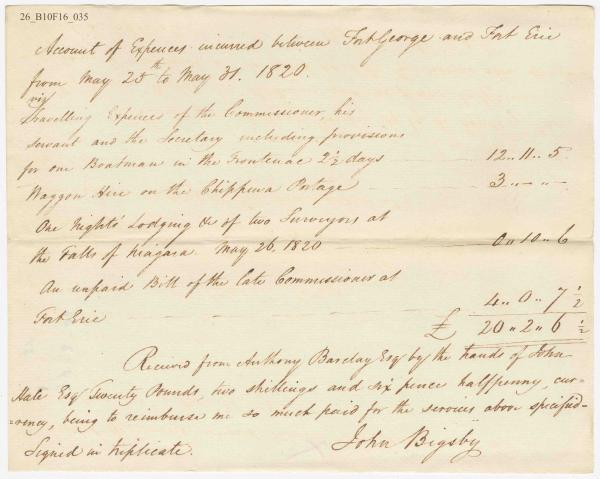 26_B10F16_035
Account of Expences incurred between Fort George and Fort Erie
from May 25th to May 31. 1820.
viz
Travelling Expences of the Commissioner, his
servant and the Secretary including provisions
for one Boatman in the Frontenac 2½ days 12.. 11.. 5.
Waggon Hire on the Chippewa Portage 3.. — .. —
One Nights' Lodging &c of two Surveyors at
the Falls of Niagara. May 26. 1820 0 .. 10 .. 6
An unpaid Bill of the late Commissioner at
Fort Erie 4.. 0.. 7 ½
£ 20 .. 2 .. 6 ½
Received from Anthony Barclay Esq by the hands of John
Hale Esq Twenty Pounds, two shillings and six pence halfpenny, cur-
-rency, being to reimburse me so much paid for the services above specified-
Signed in triplicate. John Bigsby